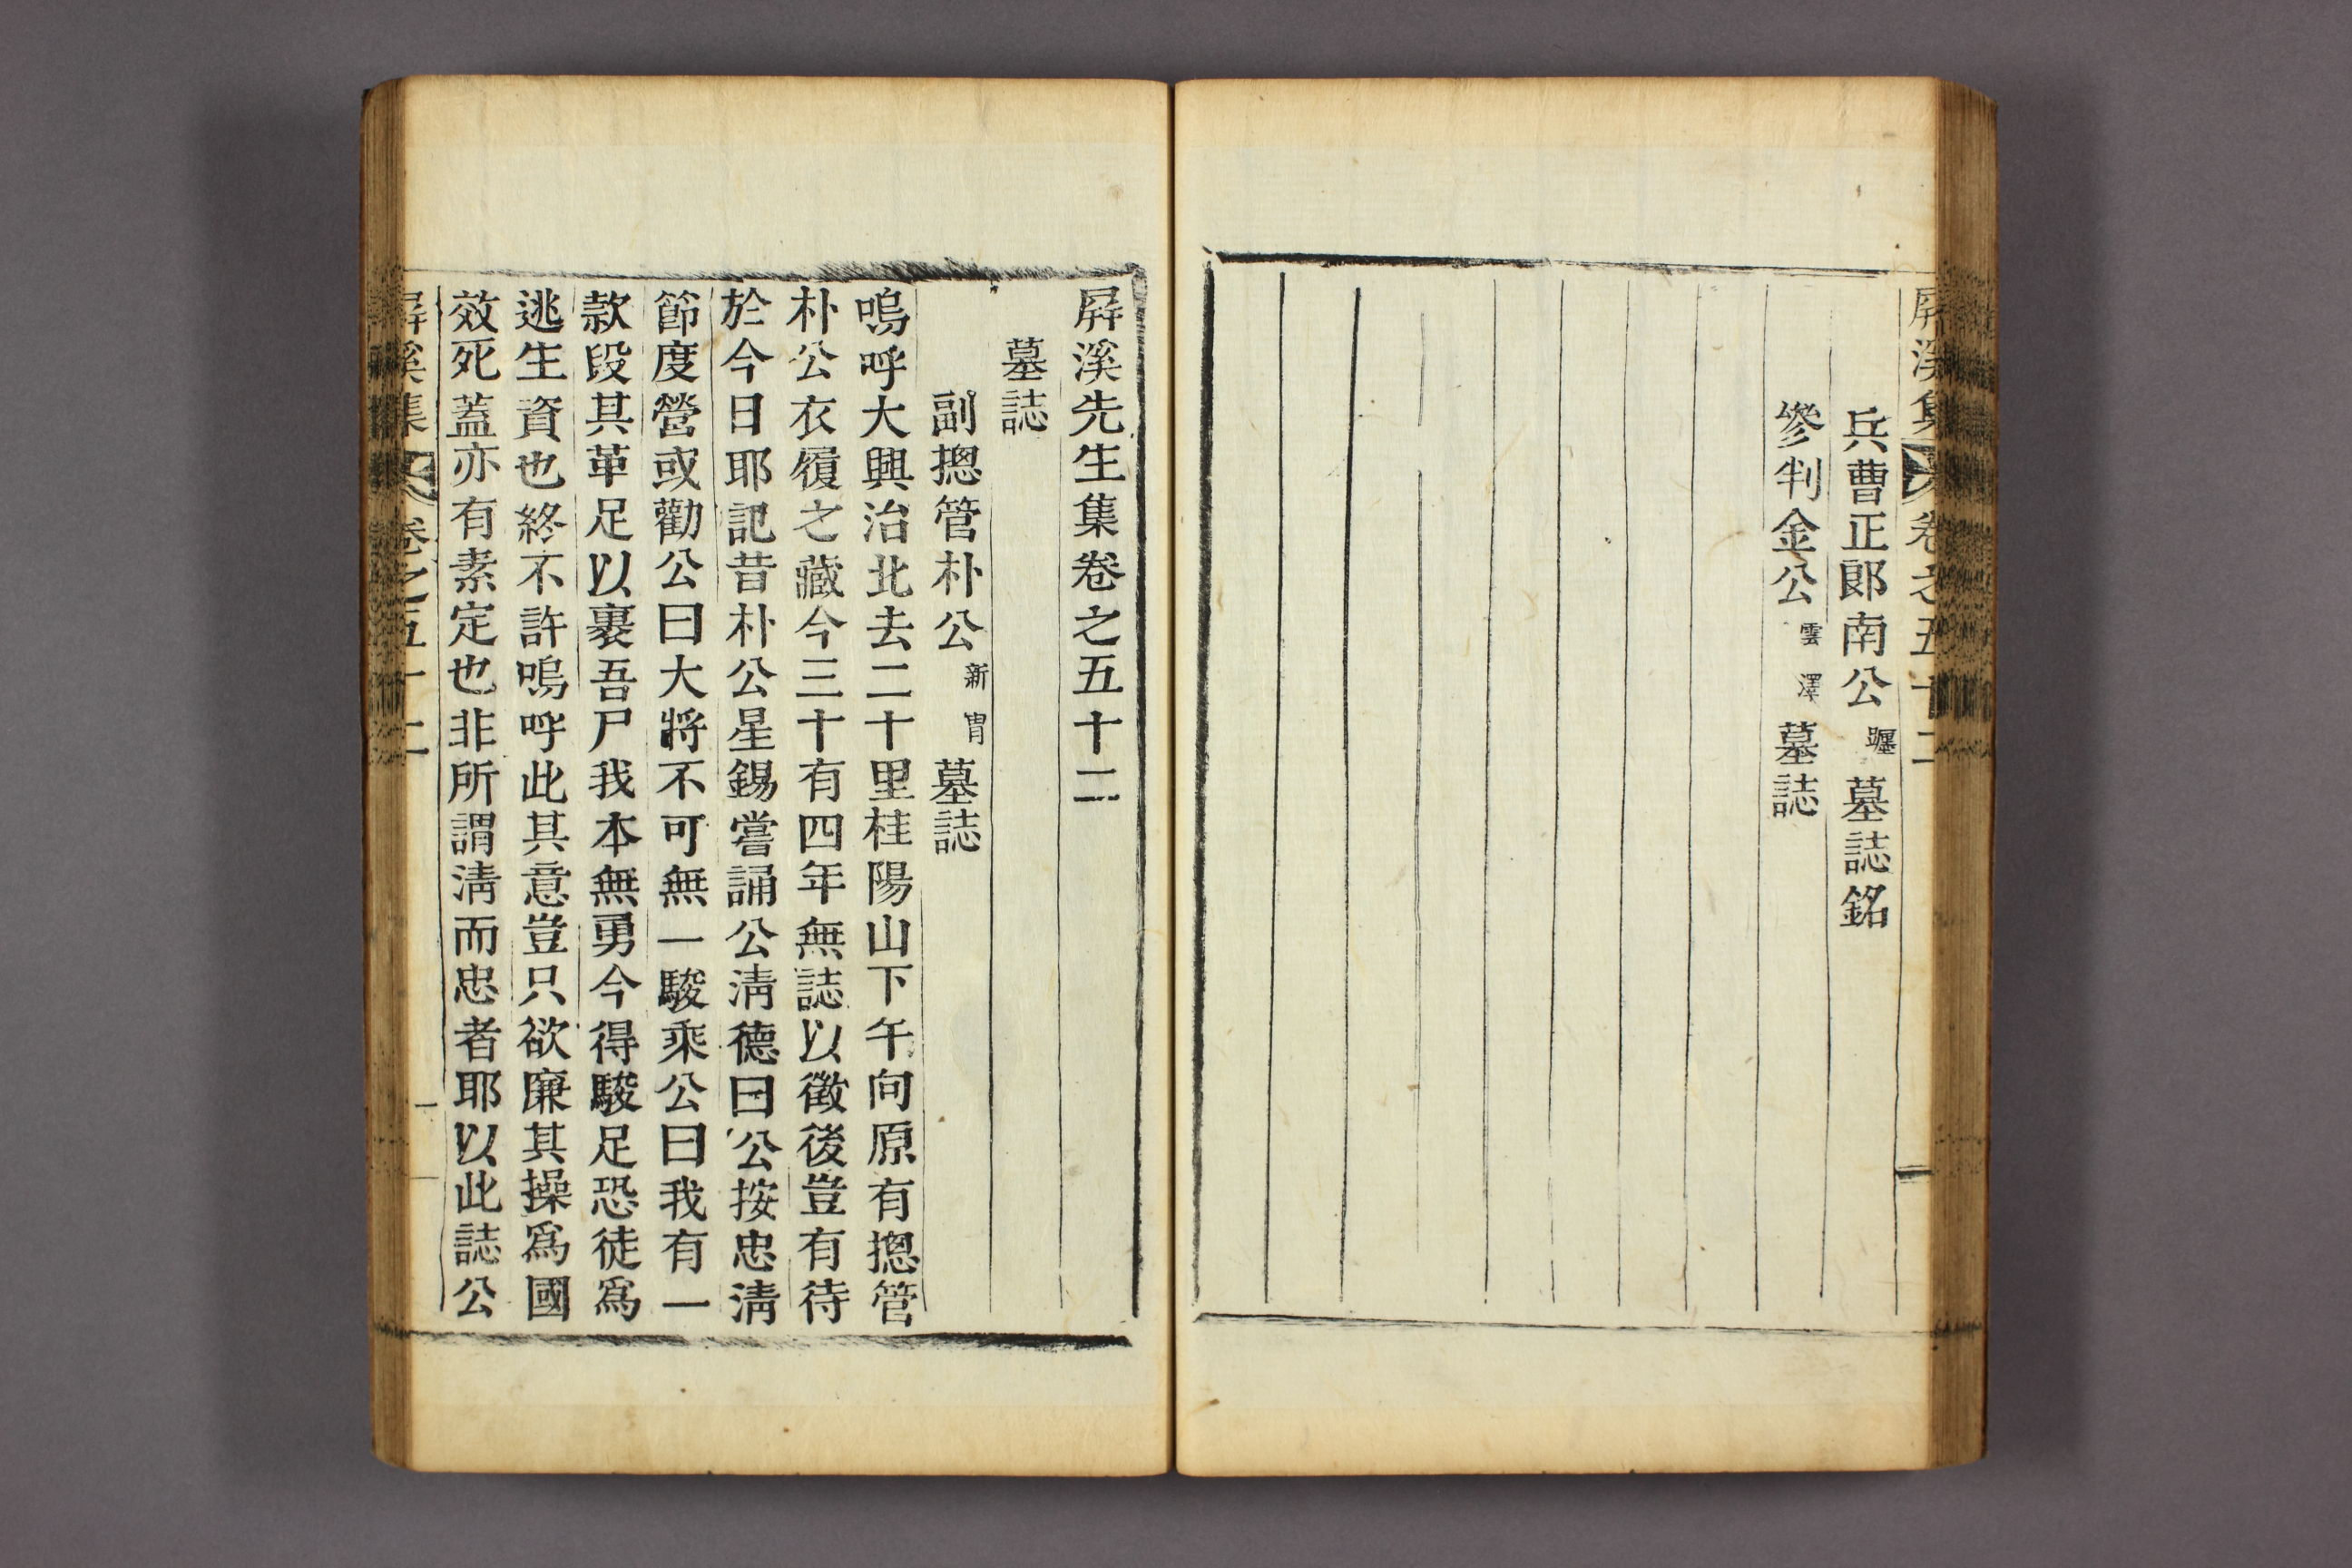 屛溪集 卷之五十二
兵曹正郞南公躔墓誌銘
參判金公雲澤墓誌
屛溪先生集卷之五十二
墓誌
副摠管朴公新冑墓誌
嗚呼大興治北去二十里桂陽山下午向原有摠管
朴公衣履之藏今三十有四年無誌以徵後豈有待
於今日耶記昔朴公星錫嘗誦公淸德曰公按忠淸
節度營或勸公曰大將不可無一駿乘公曰我有一
款段其革足以裹吾尸我本無勇今得駿足恐徒爲
逃生資也終不許嗚呼此其意豈只欲廉其操爲國
效死蓋亦有素定也非所謂淸而忠者耶以此誌公
屛溪集 卷之五十二 一